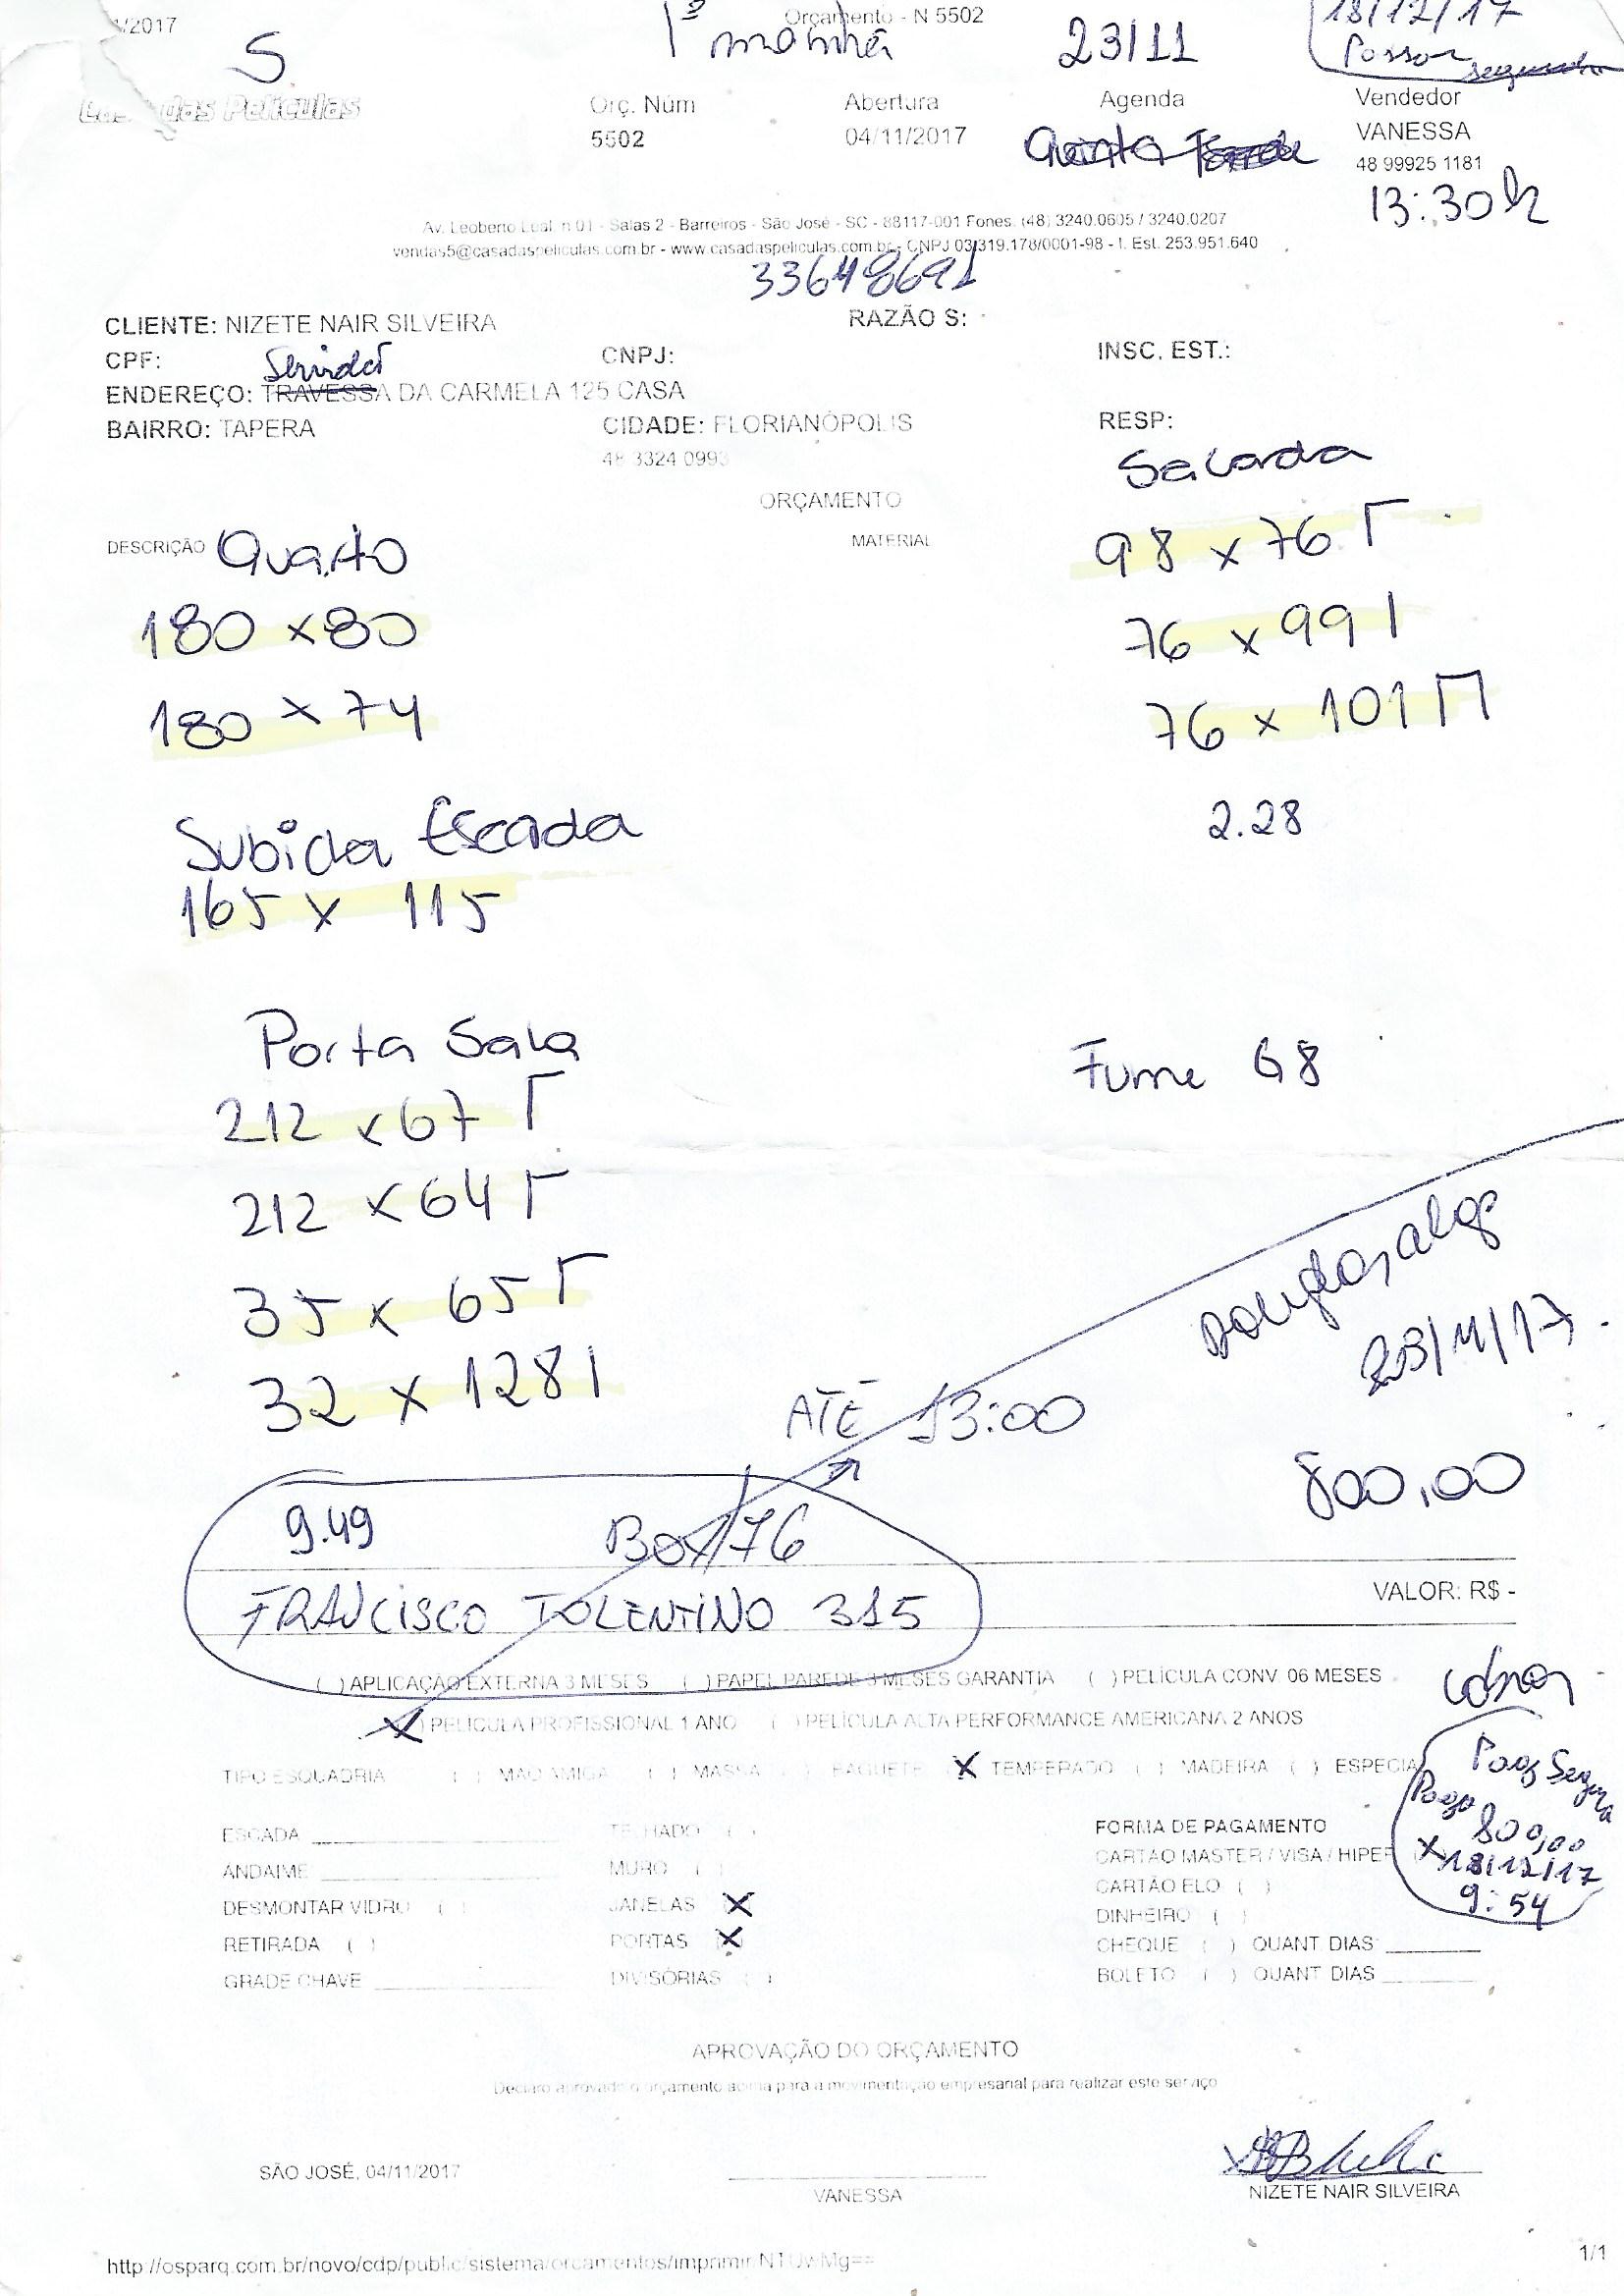 /2017
Orçamento - N 5502
1ª manhã
23/11
18/12/17
Passar segunda
S
Casa das Películas
Orç. Núm
5502
Abertura
04/11/2017
Agenda
Quinta Tarde
Vendedor
VANESSA
48 99925 1181
13:30h
Av. Leoberto Leal, n 01 - Salas 2 - Barreiros - São José - SC - 88117-001 Fones. (48) 3240.0605 / 3240.0207
vendas5@casadaspeliculas.com.br - www.casadaspeliculas.com.br - CNPJ 03/319.178/0001-98 - I. Est. 253.951.640
33648691
CLIENTE: NIZETE NAIR SILVEIRA
RAZÃO S:
CPF:
CNPJ:
INSC. EST.:
ENDEREÇO: TRAVESSA DA CARMELA 125 CASA
BAIRRO: TAPERA
CIDADE: FLORIANÓPOLIS
RESP:
48 3324 0993
ORÇAMENTO
DESCRIÇÃO
MATERIAL
Quarto
180 x 80
180 x 74
Sacada
98 x 76 Γ
76 x 99 I
76 x 101 Π
2.28
Subida Escada
165 x 115
Porta Sala
212 x 67 Γ
212 x 64 Γ
35 x 65 Γ
32 x 128 I
Fume G8
23/11/17
ATÉ 13:00
800,00
9.49
BOX 76
FRANCISCO TOLENTINO 315
VALOR: R$ -
( ) APLICAÇÃO EXTERNA 3 MESES ( ) PAPEL PAREDE 3 MESES GARANTIA ( ) PELÍCULA CONV. 06 MESES
X ) PELICULA PROFISSIONAL 1 ANO ( ) PELÍCULA ALTA PERFORMANCE AMERICANA 2 ANOS
TIPO ESQUADRIA ( ) MAO AMIGA ( ) MASSA ( ) BAGUETE X TEMPERADO ( ) MADEIRA ( ) ESPECIA
Pag Segura
Pago
800,00
18/12/17
9:54
ESCADA
TELHADO ( )
FORMA DE PAGAMENTO
ANDAIME
MURO ( )
CARTÃO MASTER / VISA / HIPER X
DESMONTAR VIDRO ( )
JANELAS X
CARTÃO ELO ( )
RETIRADA ( )
PORTAS X
DINHEIRO ( )
GRADE CHAVE
DIVISÓRIAS ( )
CHEQUE ( ) QUANT. DIAS
BOLETO ( ) QUANT. DIAS
APROVAÇÃO DO ORÇAMENTO
Declaro aprovado o orçamento acima para a movimentação empresarial para realizar este serviço
SÃO JOSÉ, 04/11/2017
VANESSA
NIZETE NAIR SILVEIRA
http://osparq.com.br/novo/cdp/public/sistema/orcamentos/imprimir/NTUwMg==
1/1